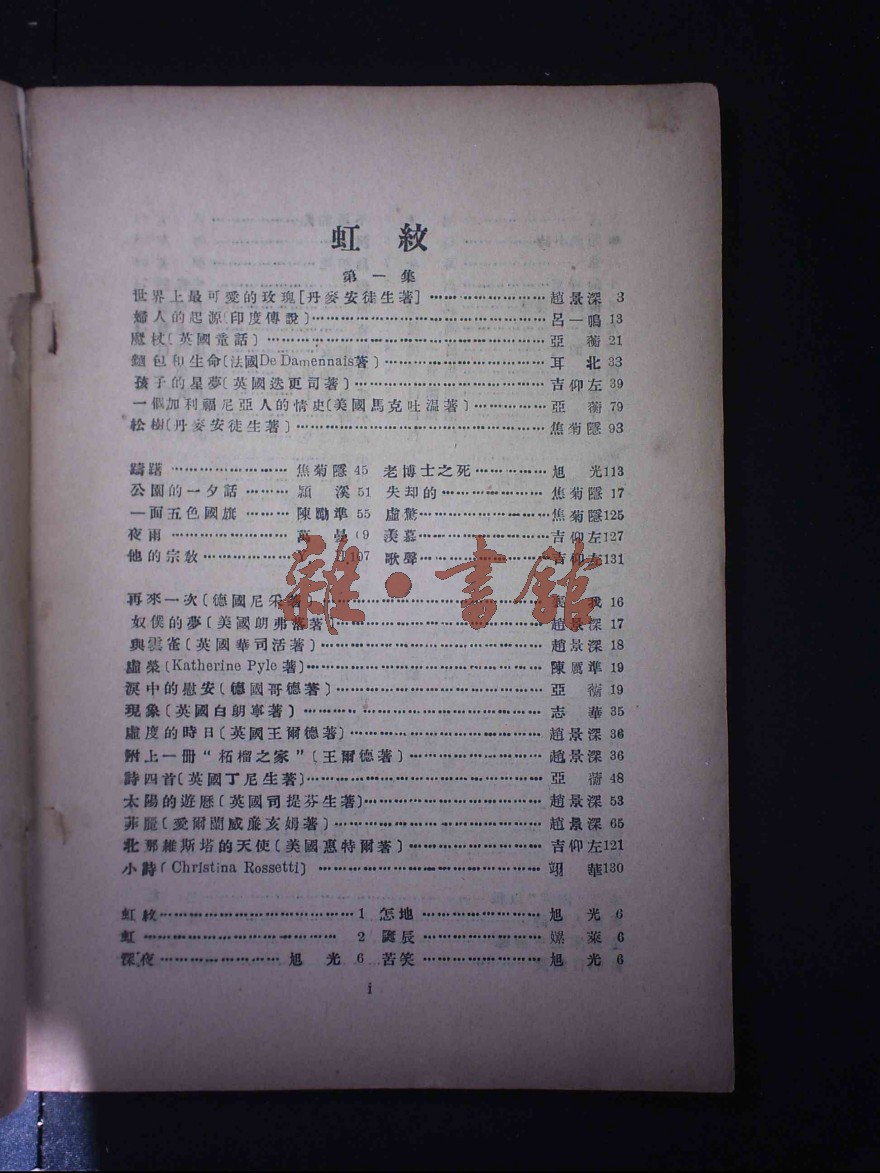 虹紋
第一集
世界上最可愛的玫瑰[丹麥安徒生著]……………………趙景深 3
婦人的起源(印度傳說)……………………呂一鳴 13
魔杖[英國童話]……………………亞蘅 21
麵包和生命(法國De Damennais著)……………………耳北 33
孩子的星夢[英國迭更司著]……………………吉仰左 39
一個加利福尼亞人的情史[美國馬克吐温著]……………………亞蘅 79
松樹[丹麥安徒生著]……………………焦菊隱 93
躊躇……………………焦菊隱 45 老博士之死……………………旭光 113
公園的一夕話……………………顥溪 51 失却的……………………焦菊隱 17
一面五色國旗……………………陳勵準 55 虛驚……………………焦菊隱 125
夜雨……………………萬曼 羨慕……………………吉仰左 127
他的宗教……………………107 歌聲……………………吉仰左 131
再來一次[德國尼采著]……………………我 16
奴僕的夢[美國朗弗落著]……………………趙景深 17
與雲雀[英國華司活著]……………………趙景深 18
虛榮(Katherine Pyle著)……………………陳厲準 19
淚中的慰安[德國哥德著]……………………亞蘅 19
現象[英國白朗寧著]……………………志華 35
虛度的時日[英國王爾德著]……………………趙景深 36
附上一冊“柘榴之家”[王爾德著]……………………趙景深 36
詩四首[英國丁尼生著]……………………亞蘅 48
太陽的遊歷[英國司提芬生著]……………………趙景深 53
菲麗[愛爾蘭威廉亥姆著]……………………趙景深 65
北那維斯塔的天使[美國惠特爾著]……………………吉仰左 121
小詩(Christina Rossetti)……………………翊華 130
虹紋……………………1 怎地……………………旭光 6
虹……………………2 辰……………………媒萊 6
深夜……………………旭光 6 苦笑……………………旭光 6
i
雜·書館